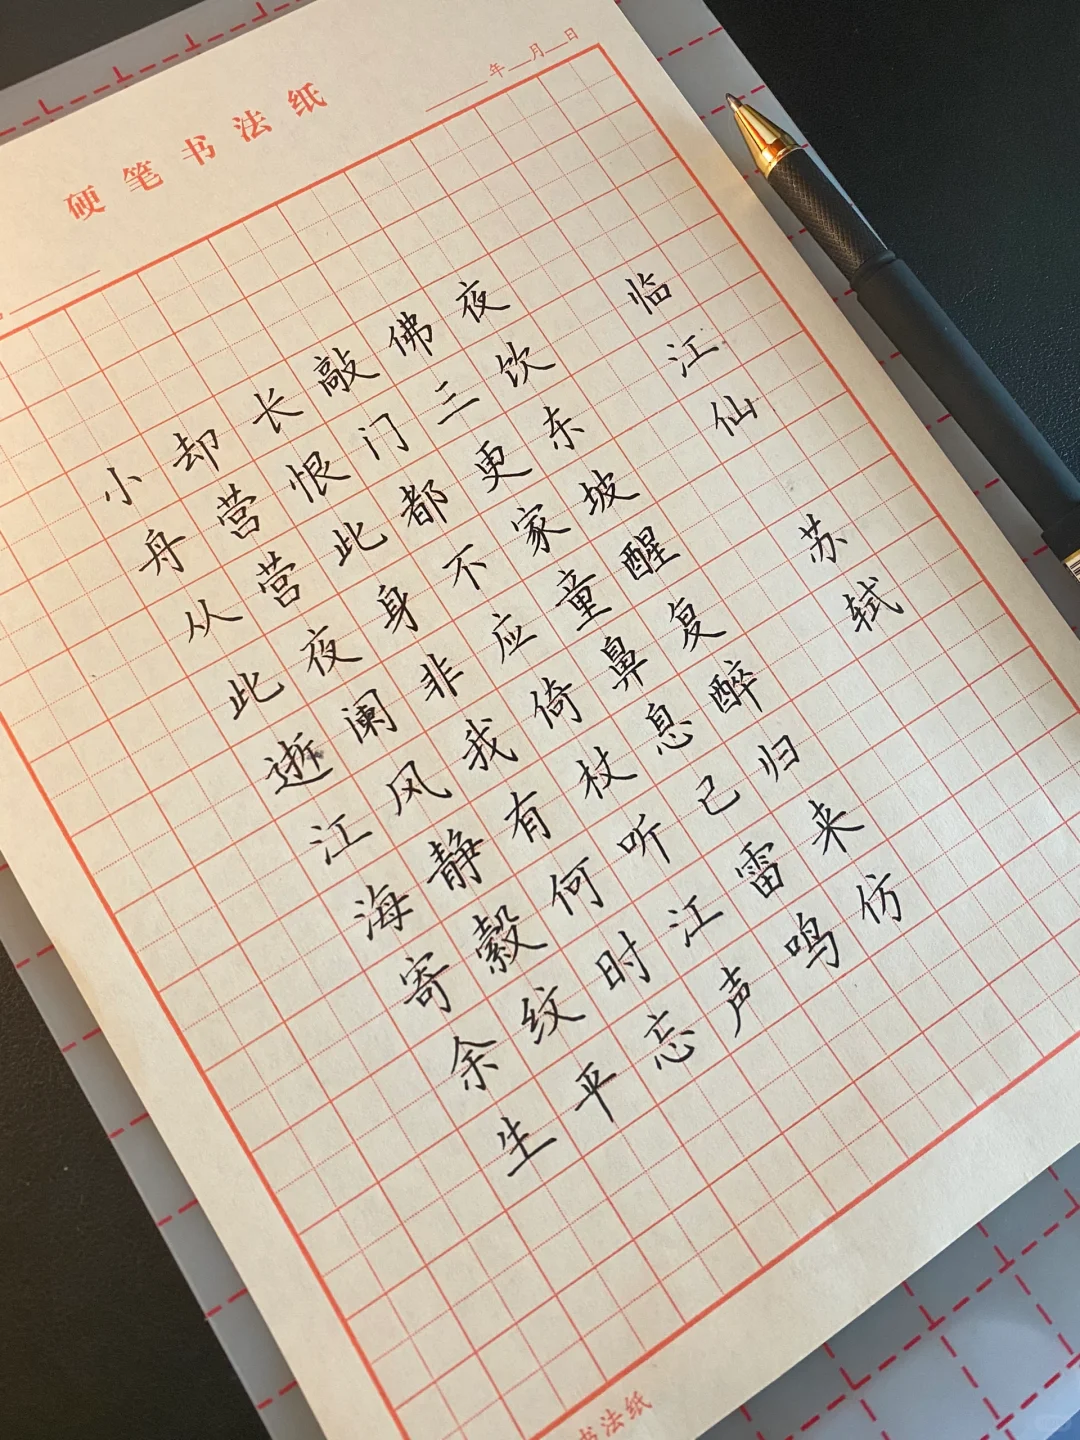 硬笔书法纸
年 月 日
临江仙 苏轼
夜饮东坡醒复醉归来仿
佛三更家童鼻息已雷鸣
敲门都不应倚杖听江声
长恨此身非我有何时忘
却营营夜阑风静縠纹平
小舟从此逝江海寄余生
书法纸